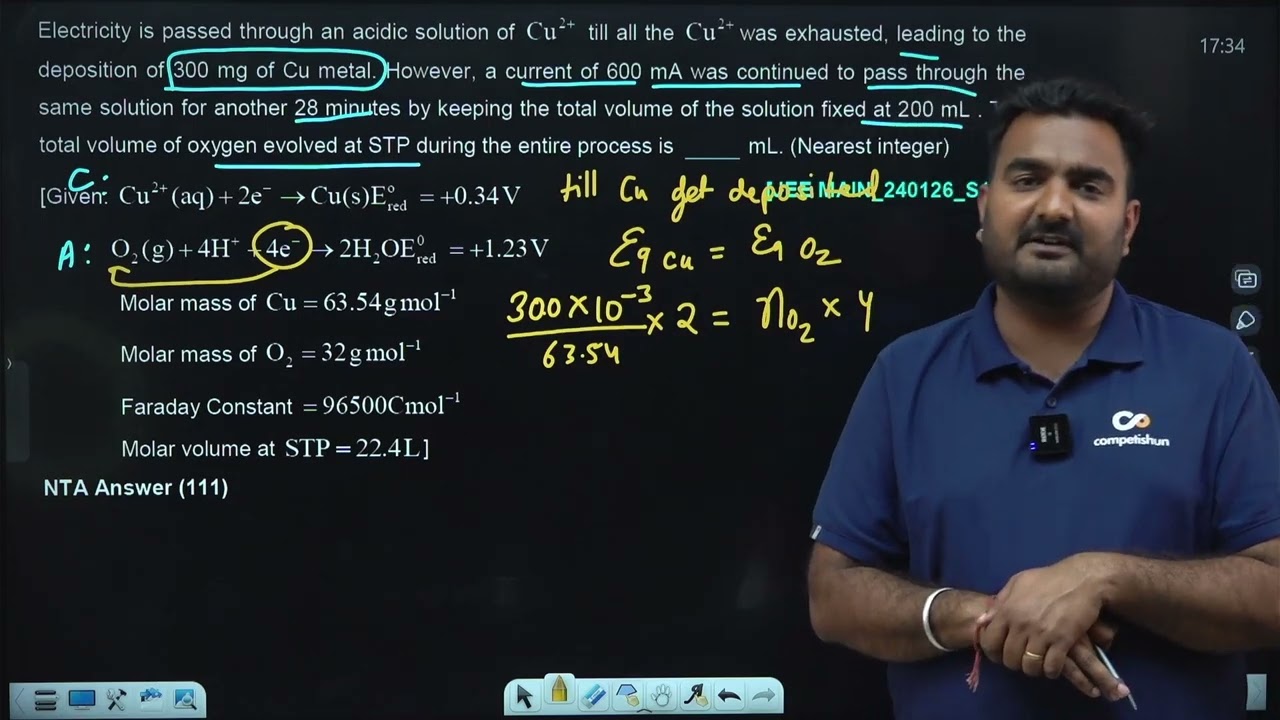 Electricity is passed through an acidic solution of Cu²⁺ till all the Cu²⁺ was exhausted, leading to the
17:34
deposition of 300 mg of Cu metal. However, a current of 600 mA was continued to pass through the
same solution for another 28 minutes by keeping the total volume of the solution fixed at 200 mL .
total volume of oxygen evolved at STP during the entire process is _____ mL. (Nearest integer)
C:
[Given: Cu²⁺(aq) + 2e⁻ → Cu(s)E°red = +0.34V
till Cu get deposited
MAIN_240126_S
A: O₂(g) + 4H⁺ + 4e⁻ → 2H₂OE⁰red = +1.23V
Eq Cu = Eq O₂
Molar mass of Cu = 63.54 g mol⁻¹
300 × 10⁻³ / 63.54 × 2 = nO₂ × 4
Molar mass of O₂ = 32 g mol⁻¹
Faraday Constant = 96500C mol⁻¹
Molar volume at STP = 22.4L]
NTA Answer (111)
competishun